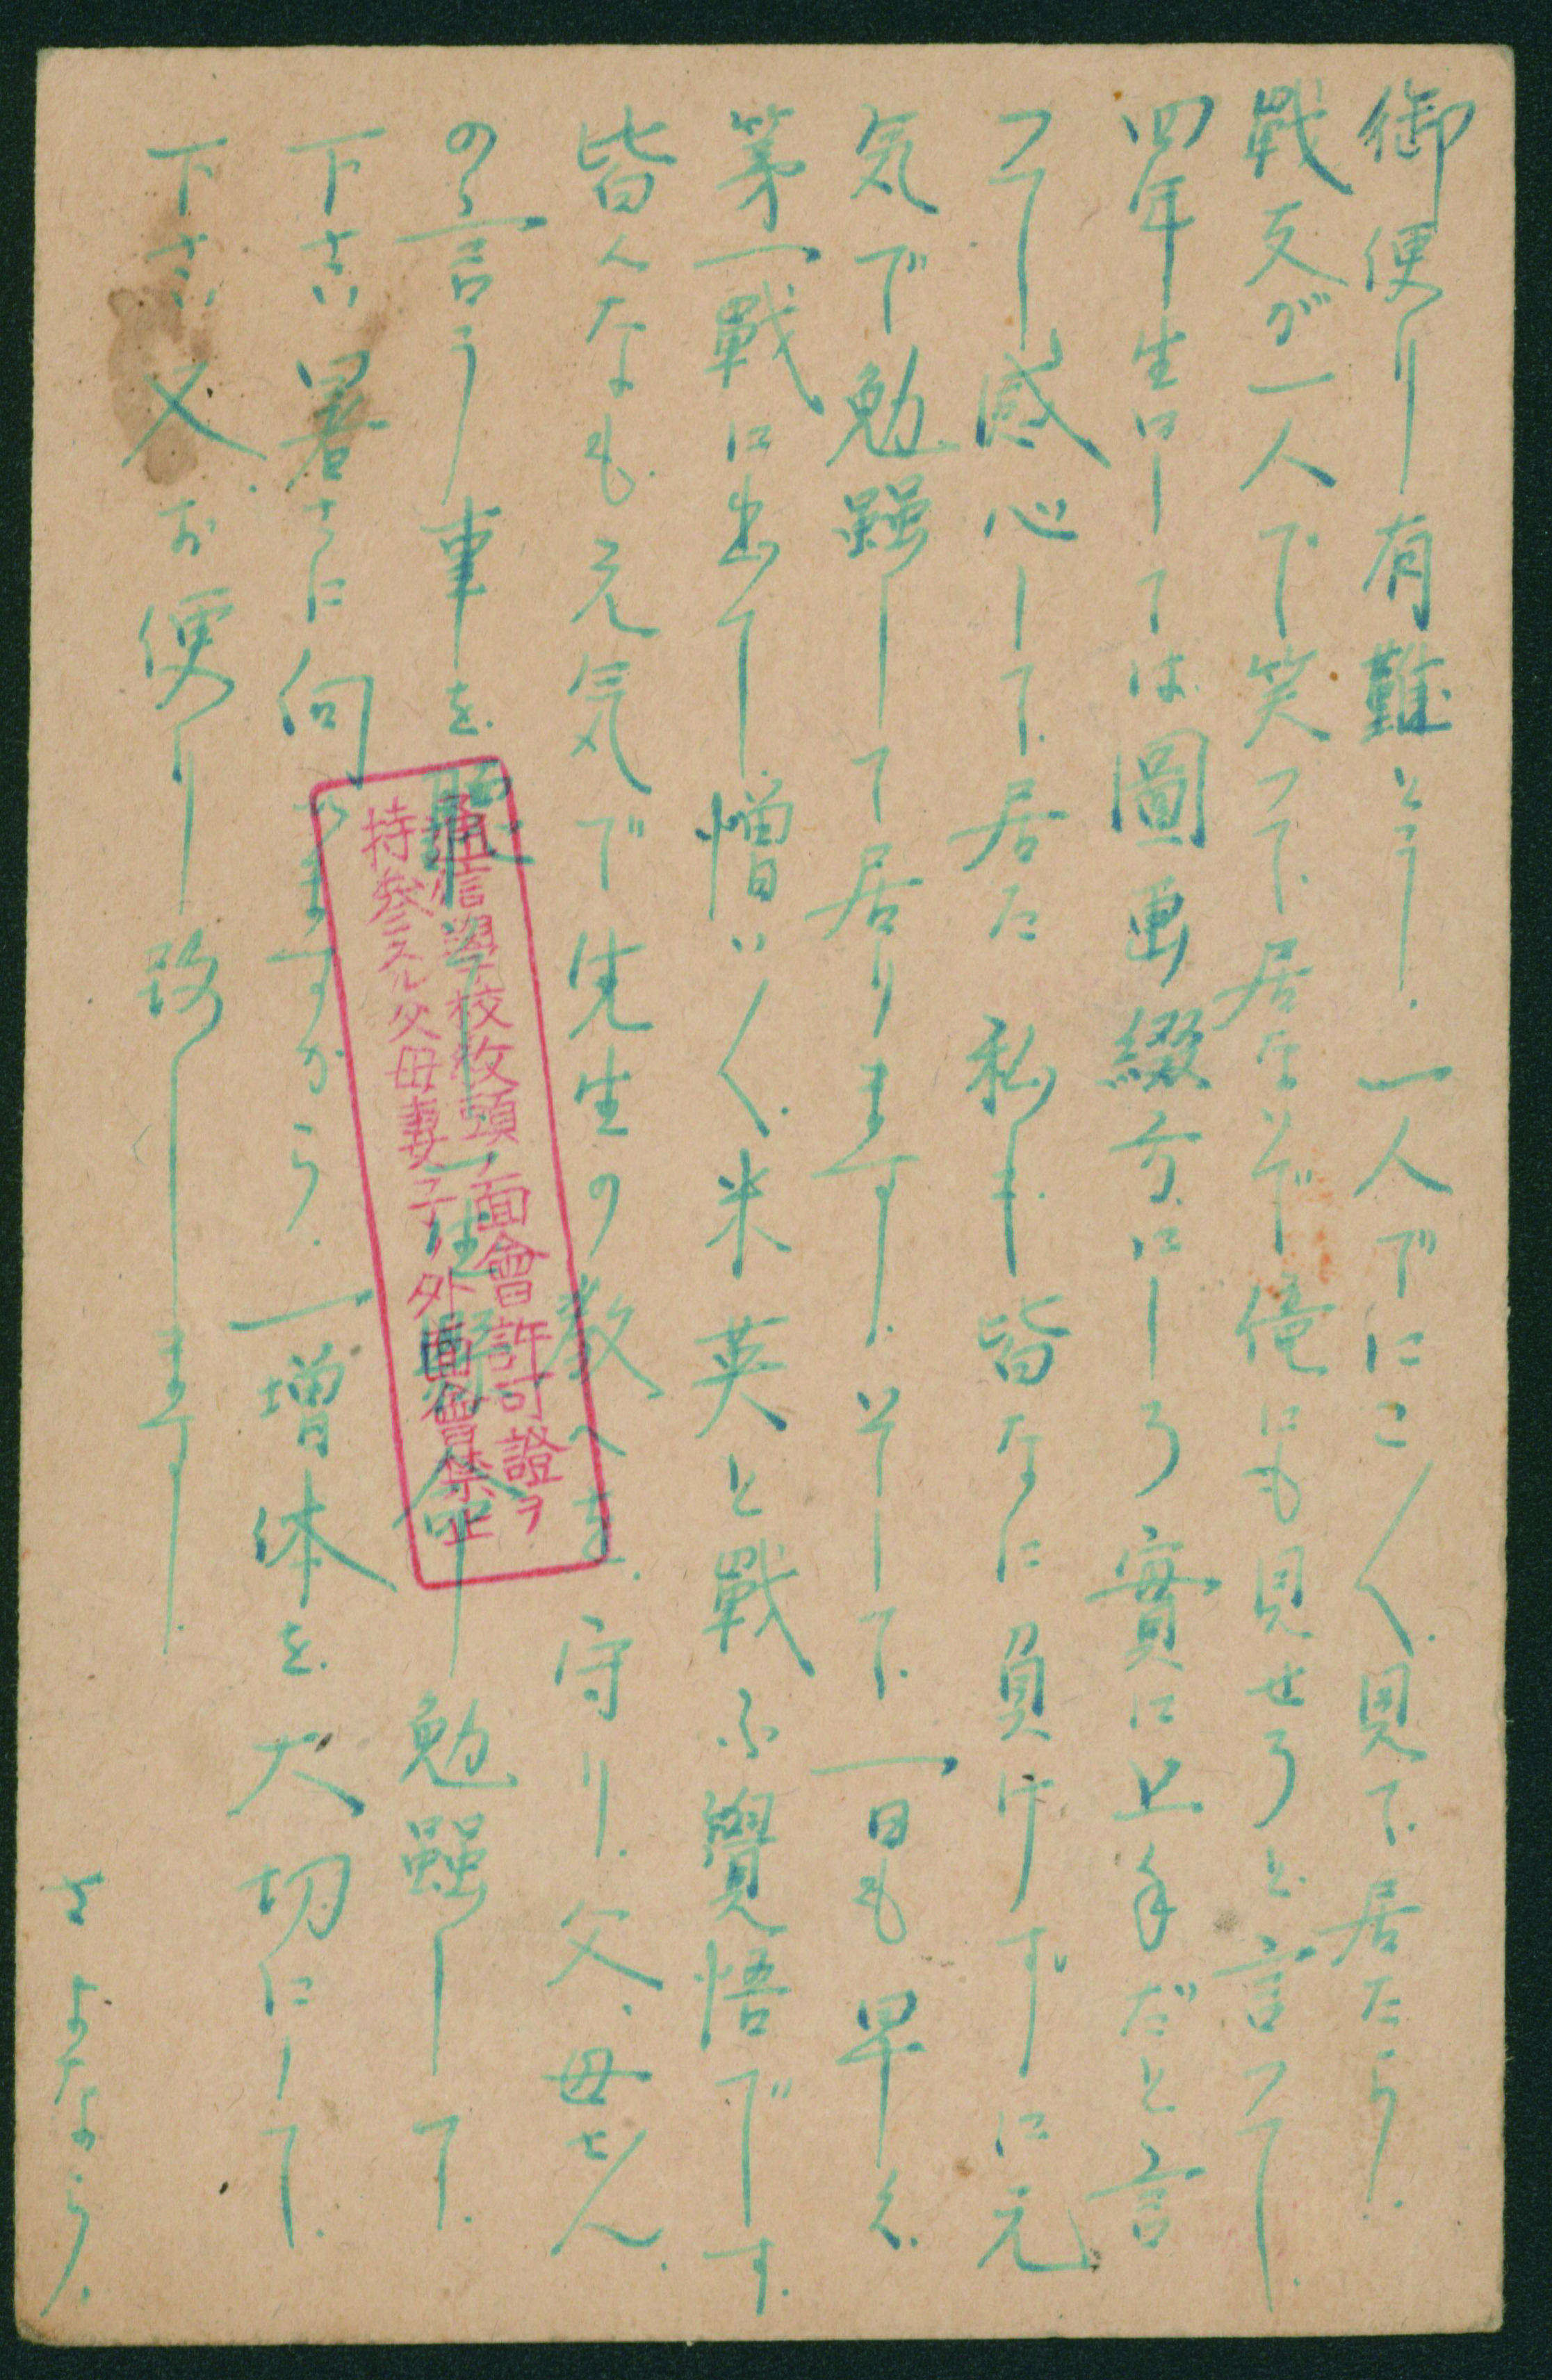 御便り有難とう、一人でにこ〱見て居たら、
戦友が一人で笑って居ないで俺にも見せろと言って、
四年生にしては圖画綴方にしろ實に上手だと言
って感心して居た 私も皆なに負けずに元
気で勉強して居ります、そして一日も早く
第一戰に出て憎い〱米英と戰ふ覺悟です、
皆んなも元気で先生の教へを守り、父、母さん
の言う事を聽いて一生懸命勉強して
下さい暑さに向ひますから、一増体を大切にして、
下さい又お便り致します
さよなら、
通信學校校頭ノ面會許可證ヲ
持參スル父母妻子ノ外面會禁止